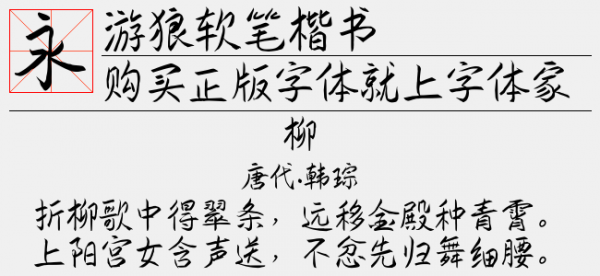 永
游狼软笔楷书
购买正版字体就上字体家
柳
唐代.韩琮
折柳歌中得翠条，远移金殿种青霄。
上阳宫女含声送，不忿先归舞细腰。